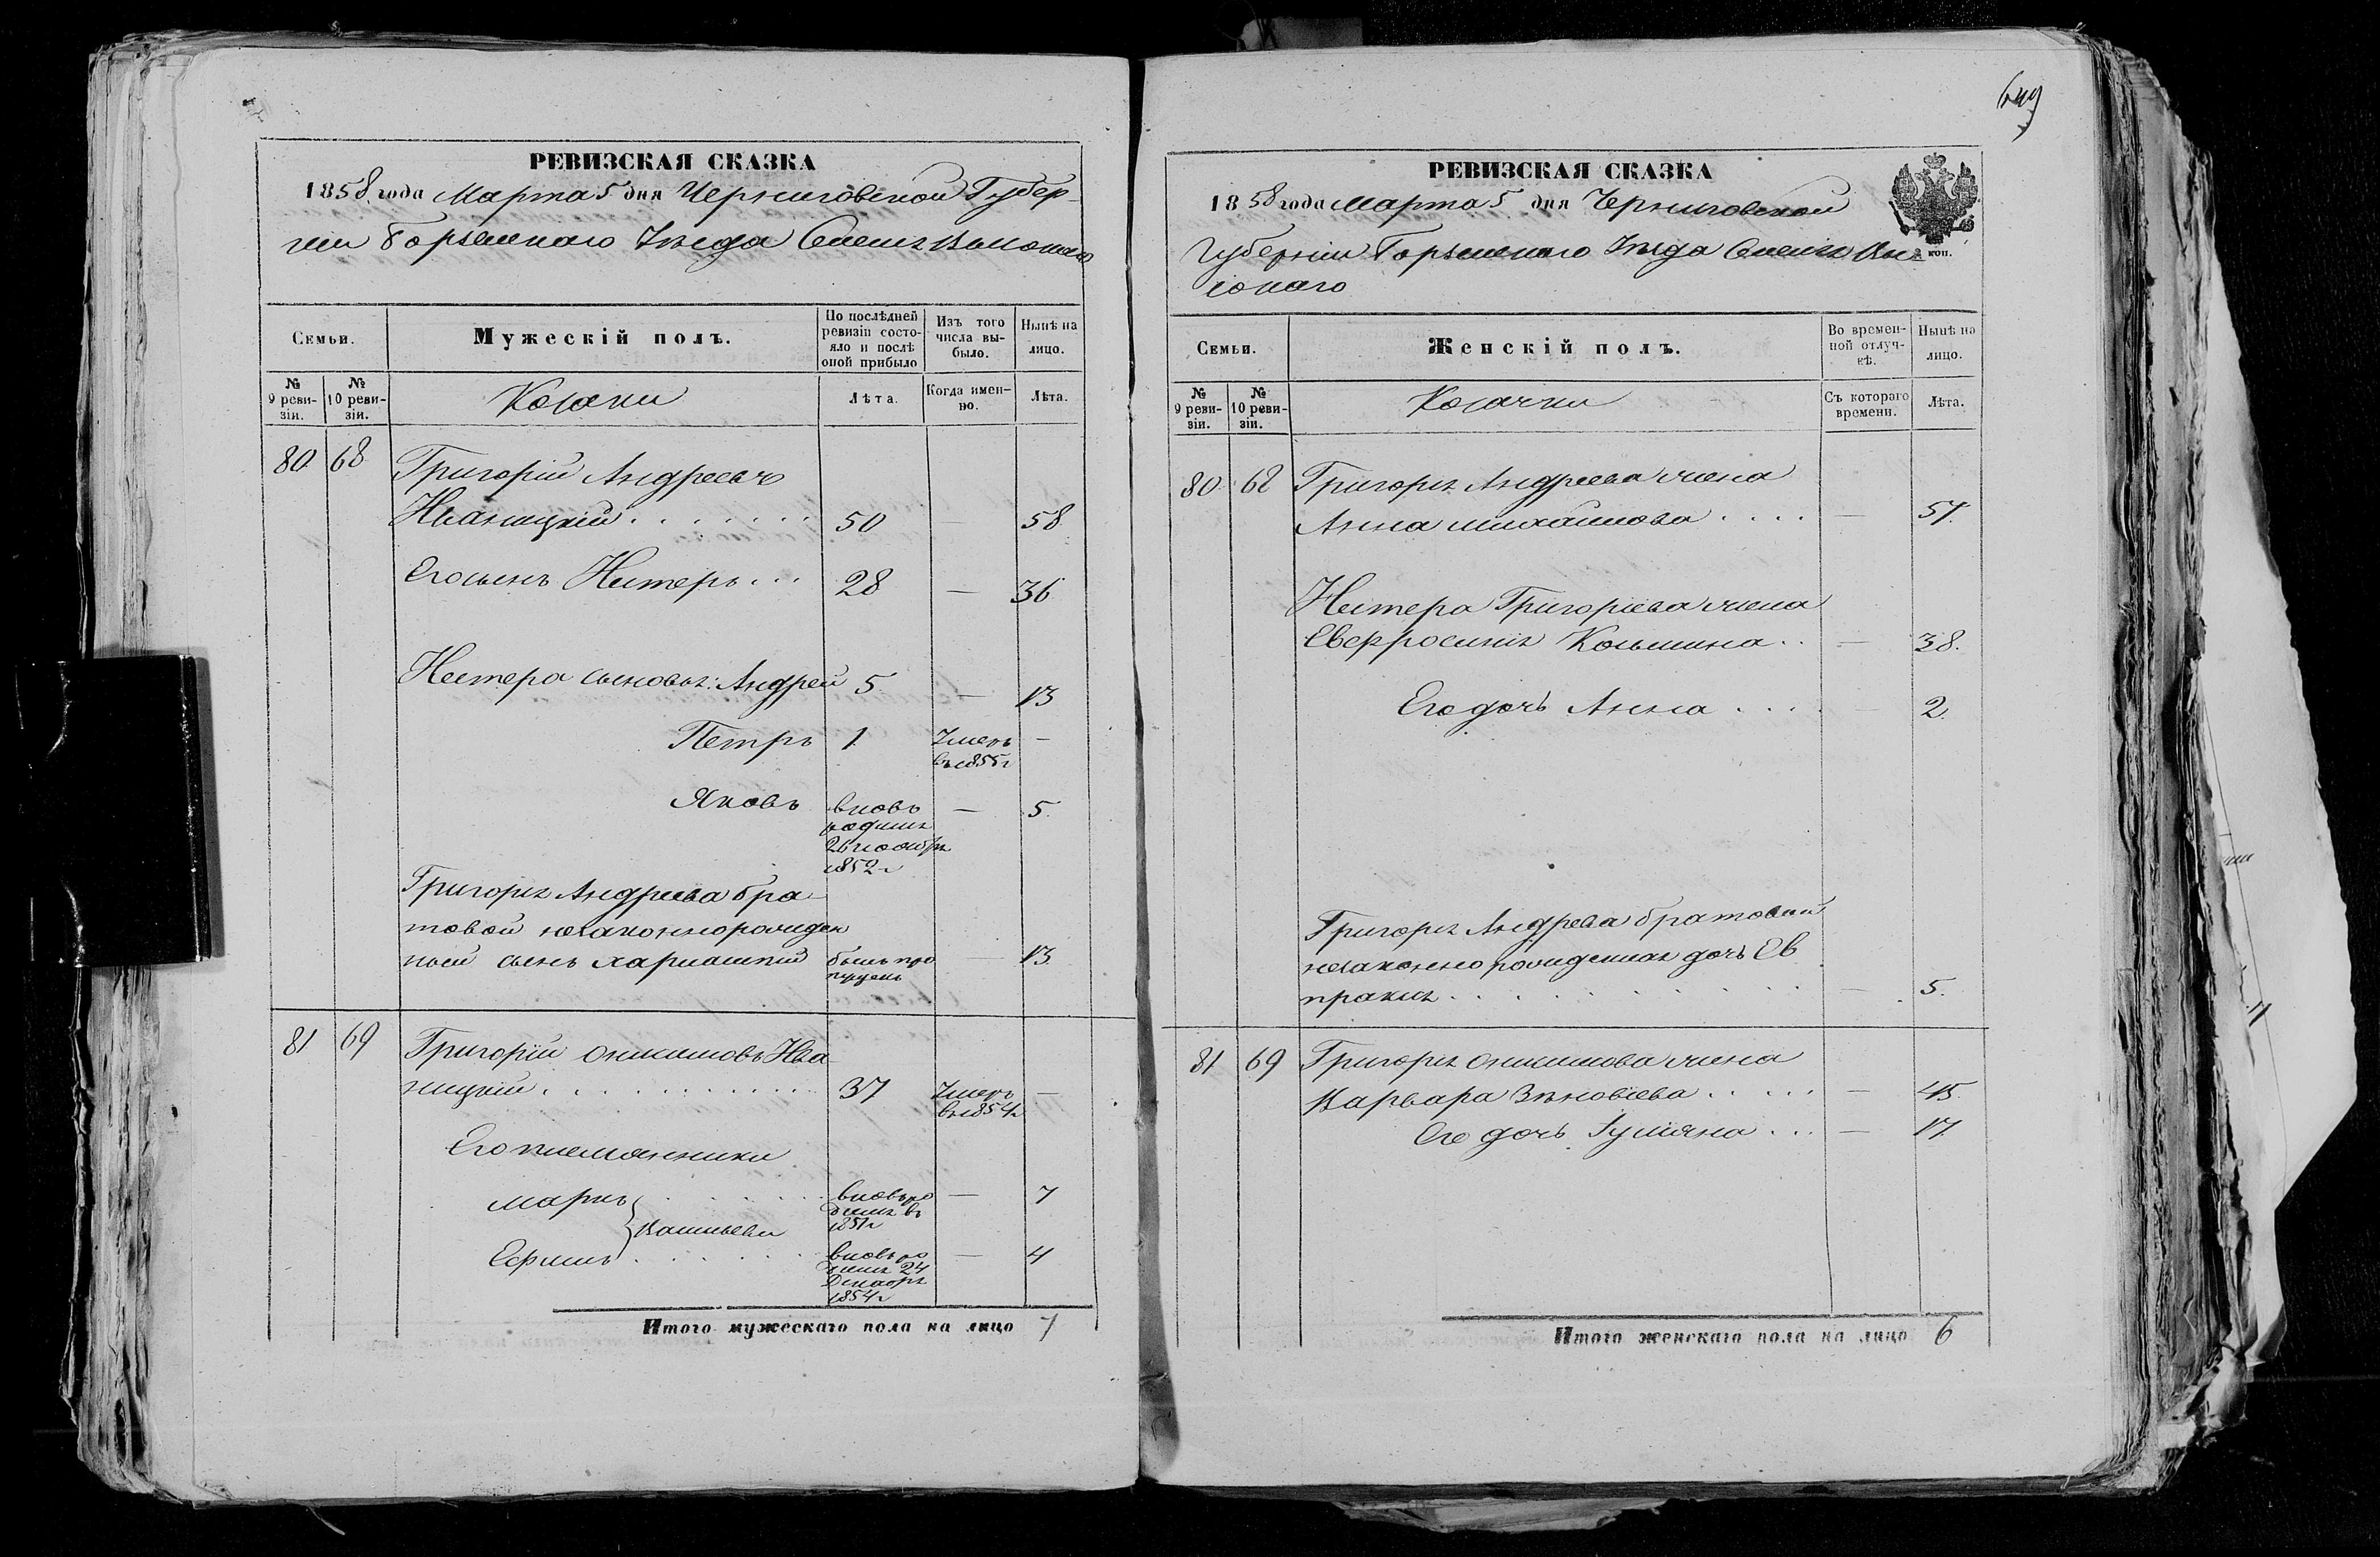 649
РЕВИЗСКАЯ СКАЗКА
1858 года Марта 5 дня Черниговской Губер-
ніи Борзенскаго Уѣзда
Семьи.
Мужескій полъ.
По послѣдней ревизіи состояло и послѣ оной прибыло
Изъ того числа выбыло.
Нынѣ на лицо.
№ 9 ревизіи.
№ 10 ревизіи.
Козаки
Лѣта.
Когда именно.
Лѣта.
80 68 Григорій Андреевъ
Иваницкій . . . . . . . 50 58
Его сынъ Нестеръ . . . 28 — 36
Нестера сыновья: Андрей 5 — 13
Петръ 1 Умеръ —
въ 1855 г
Яковъ вновь — 5.
родился
26 ноября
1852 г
Григорія Андреева бра-
товой незаконнорожден
ный сынъ Харлампій былъ про — 13
пущенъ
81 69 Григорій Онисимовъ Ива
ницкій . . . . . . . . . . 37 Умеръ —
въ 1854 г
Его племянники
Марко . . . . . . вновь ро — 7
дился въ
1851 г
Васильевы
Ефимъ . . . . . . вновь ро — 4
дился 24
Декабря
1854 г
Итого мужескаго пола на лицо 7
РЕВИЗСКАЯ СКАЗКА
1858 года Марта 5 дня Черниговской
Губерніи Борзенскаго Уѣзда
коп.
Семьи.
Женскій полъ.
Во временной отлучкѣ.
Нынѣ на лицо.
№ 9 ревизіи.
№ 10 ревизіи.
Козачки
Съ котораго времени.
Лѣта.
80 68 Григорія Андреева жена
Анна Михайлова . . . . — 57.
Нестера Григоріева жена
Евфросинія Козьмина . . — 38.
Его дочь Анна . . . . 2.
Григорія Андреева братовой
незаконно рожденная дочь Ев
праксія . . . . . . . . . . — 5.
81 69 Григорія Онисимова жена
Варвара Зѣновіева . . . . . — 45.
Его дочь Іуліяна . . . — 17.
Итого женскаго пола на лицо 6